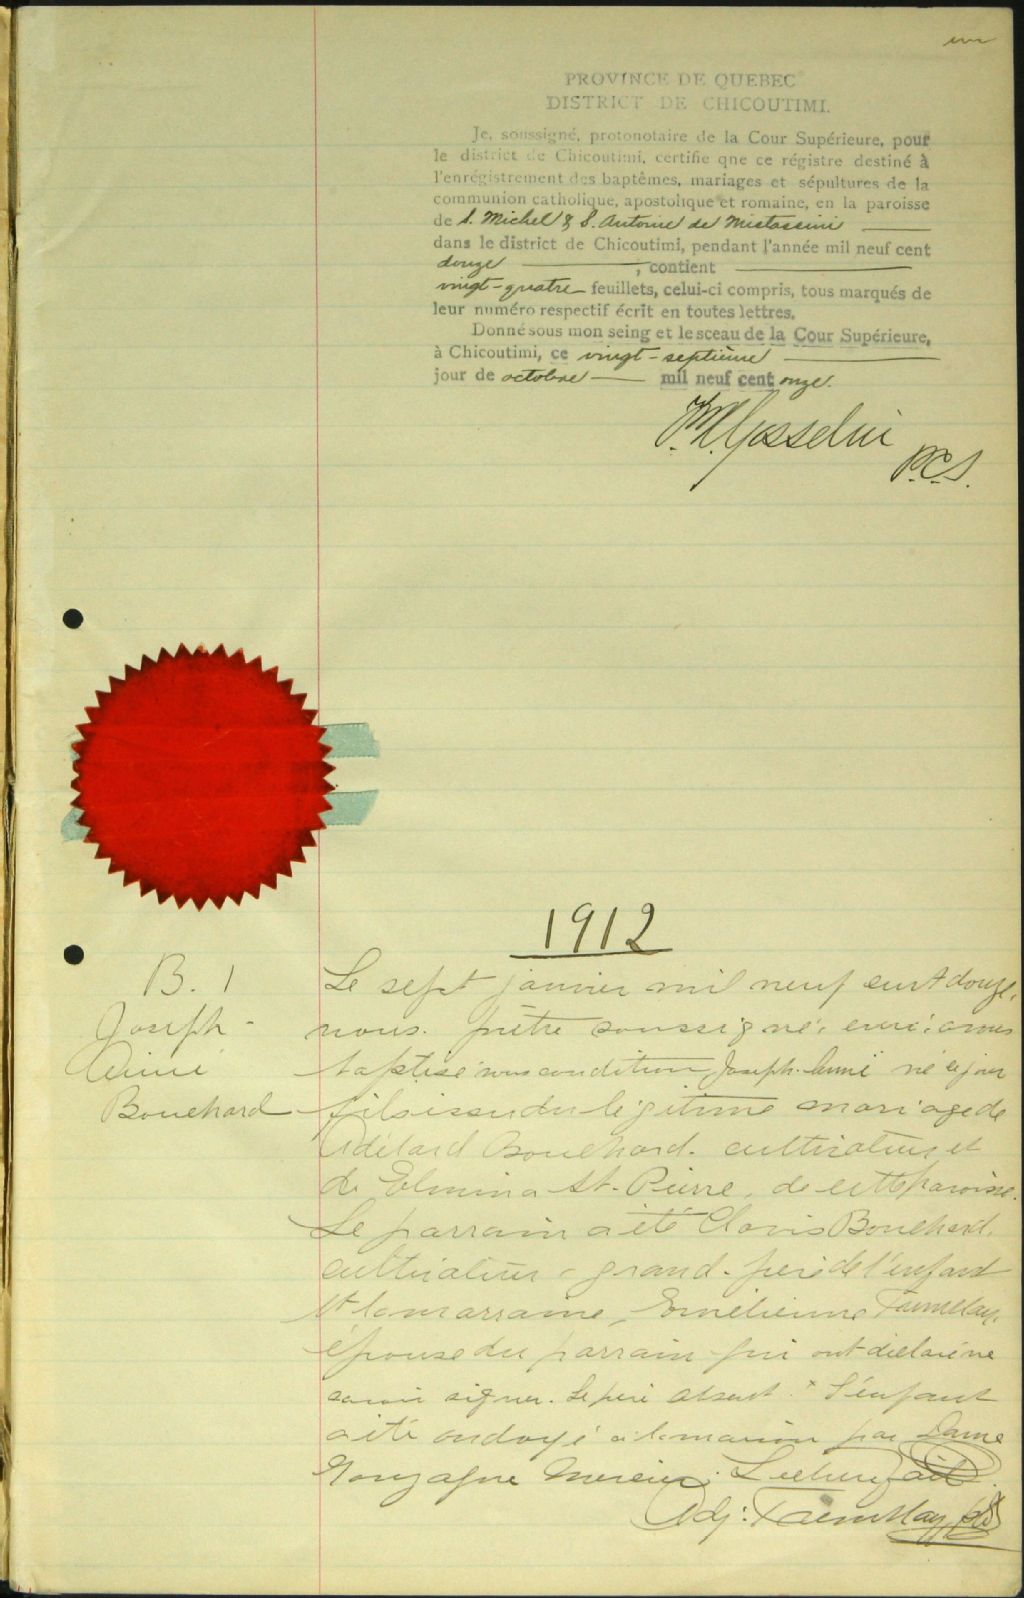 un
PROVINCE DE QUEBEC
DISTRICT DE CHICOUTIMI.
Je, soussigné, protonotaire de la Cour Supérieure, pour
le district de Chicoutimi, certifie qne ce régistre destiné à
l'enrégistrement des baptêmes, mariages et sépultures de la
communion catholique, apostolique et romaine, en la paroisse
de S. Michel & S. Antoine de Mistassini
dans le district de Chicoutimi, pendant l'année mil neuf cent
douze, contient
vingt-quatre feuillets, celui-ci compris, tous marqués de
leur numéro respectif écrit en toutes lettres.
Donné sous mon seing et le sceau de la Cour Supérieure,
à Chicoutimi, ce vingt-septième
jour de octobre mil neuf cent onze.
Gosselin
P.C.S.
1912
B. 1
Joseph-
Aimé
Bouchard
Le sept janvier mil neuf cent douze,
nous prêtre soussigné, curé, avons
baptisé sous condition Joseph-Aimé né ce jour
fils issu du légitime mariage de
Adélard Bouchard cultivateur et
de Elmina St-Pierre, de cette paroisse.
Le parrain a été Clovis Bouchard,
cultivateur, grand-père de l'enfant
et la marraine, Tremblay,
épouse du parrain qui ont déclaré ne
savoir signer. Le père absent. × L'enfant
a été ondoyé à la maison par Dame
Gonzague Mercier. Lecture faite.
Adj: Tremblay, ptr